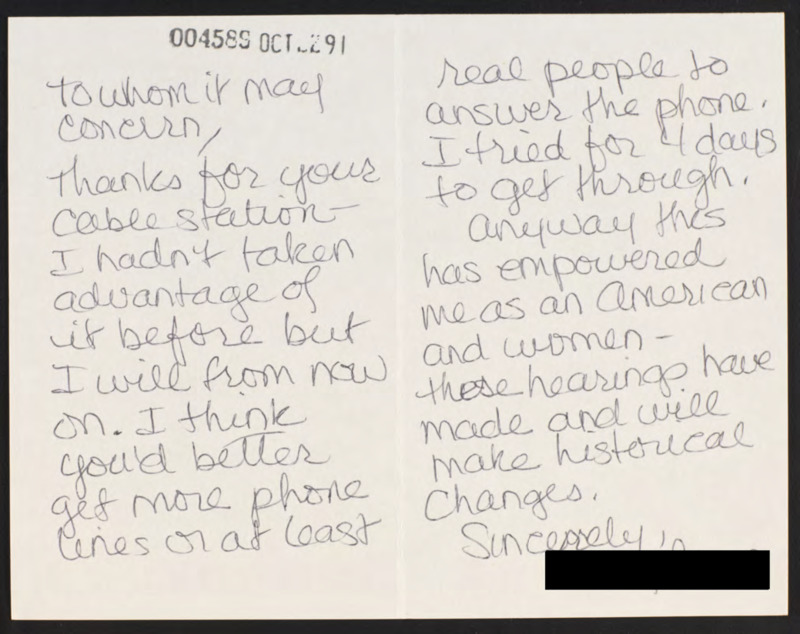 004589 OCT.291
to whom it may
concern,
thanks for your
cable station-
I hadn't taken
advantage of
it before but
I will from now
on. I think
you'd better
get more phone
lines or at least
real people to
answer the phone.
I tried for 4 days
to get through.
Anyway this
has empowered
me as an American
and women-
these hearings have
made and will
make historical
Changes.
Sincerely,